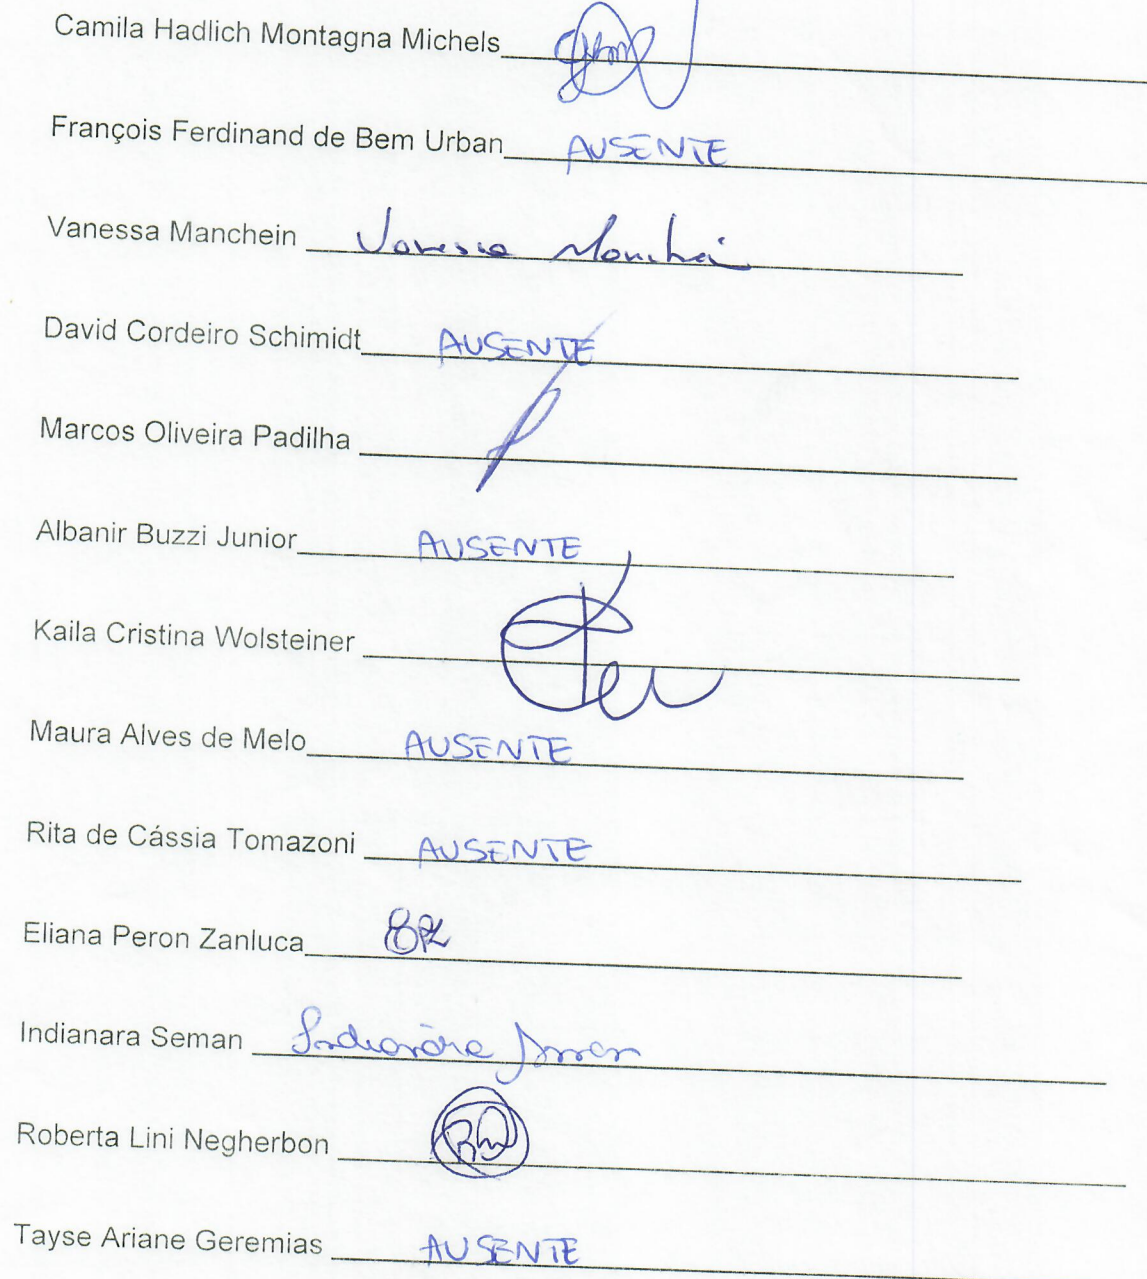 Camila Hadlich Montagna Michels
François Ferdinand de Bem Urban AUSENTE
Vanessa Manchein Vanessa Manchein
David Cordeiro Schimidt AUSENTE
Marcos Oliveira Padilha
Albanir Buzzi Junior AUSENTE
Kaila Cristina Wolsteiner
Maura Alves de Melo AUSENTE
Rita de Cássia Tomazoni AUSENTE
Eliana Peron Zanluca EPZ
Indianara Seman Indianara Seman
Roberta Lini Negherbon
Tayse Ariane Geremias AUSENTE